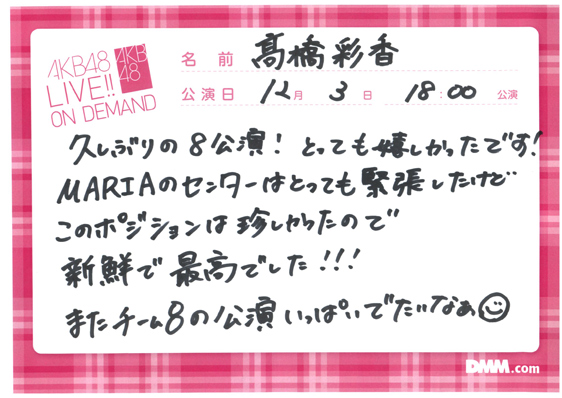 AKB48
LIVE!!
ON DEMAND
AKB
48
名前 髙橋彩香
公演日 12月 3日 18:00 公演
久しぶりの8公演！とっても嬉しかったです！
MARIAのセンターはとっても緊張したけど
このポジションは珍しかったので
新鮮で最高でした！！！
またチーム8の公演いっぱいでたいなぁ
DMM.com